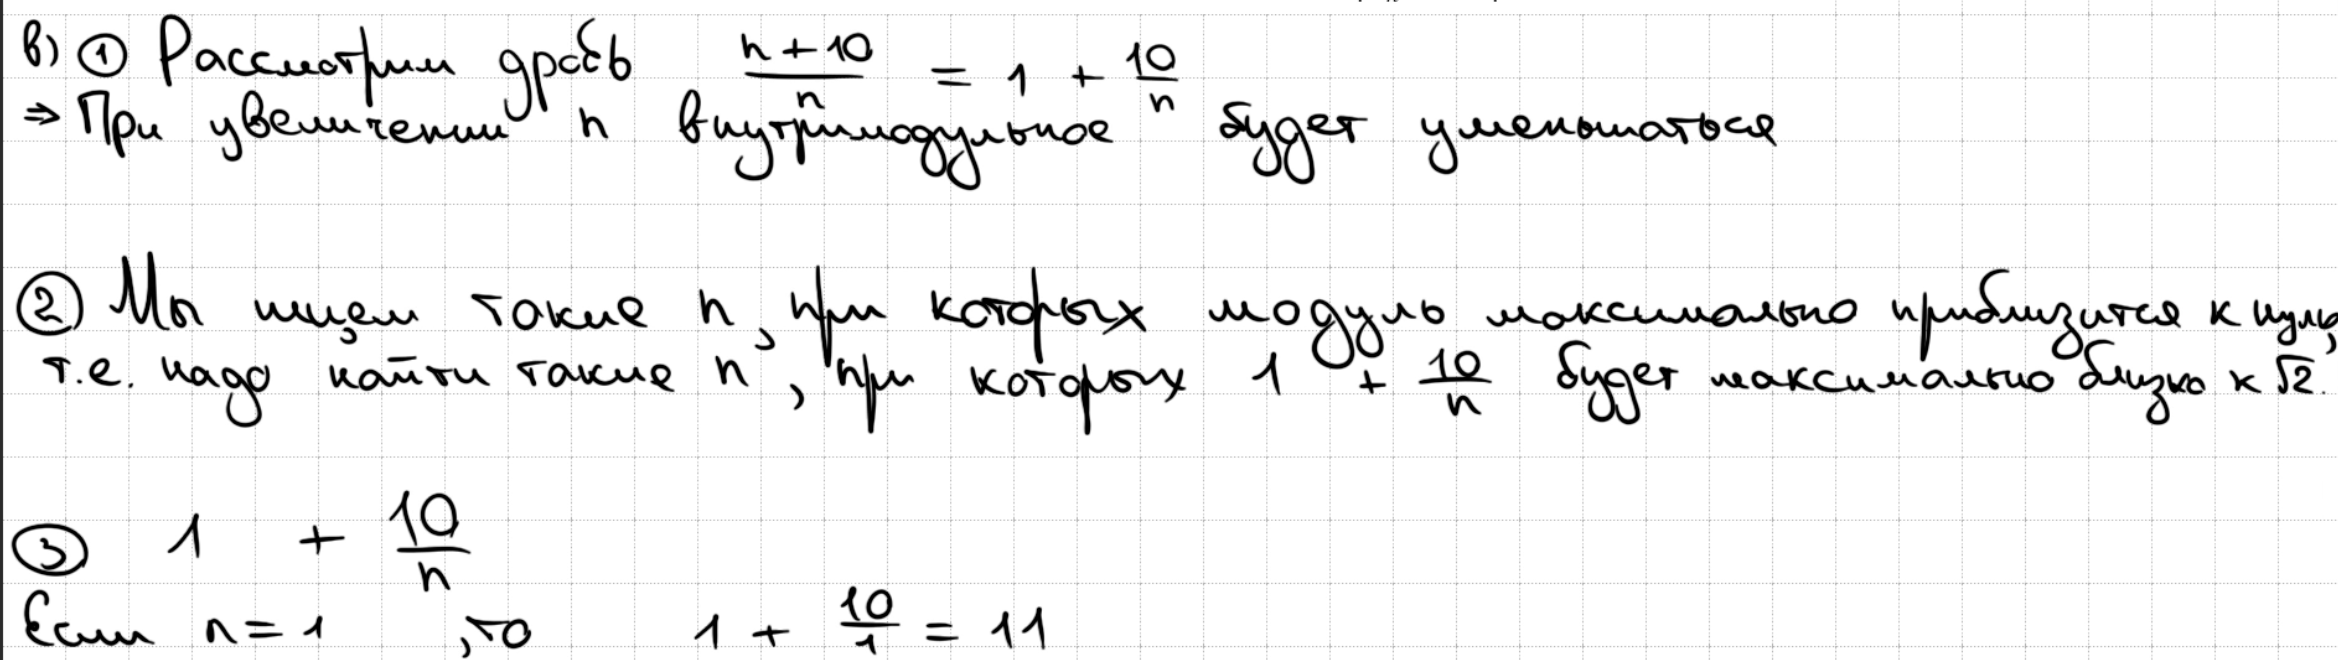 в) ① Рассмотрим дробь (n + 10)/n = 1 + 10/n
⇒ При увеличении n внутримодульное будет уменьшаться
② Мы ищем такие n, при которых модуль максимально приблизится к нулю,
т.е. надо найти такие n, при которых 1 + 10/n будет максимально близко к √2.
③ 1 + 10/n
Если n = 1, то 1 + 10/1 = 11